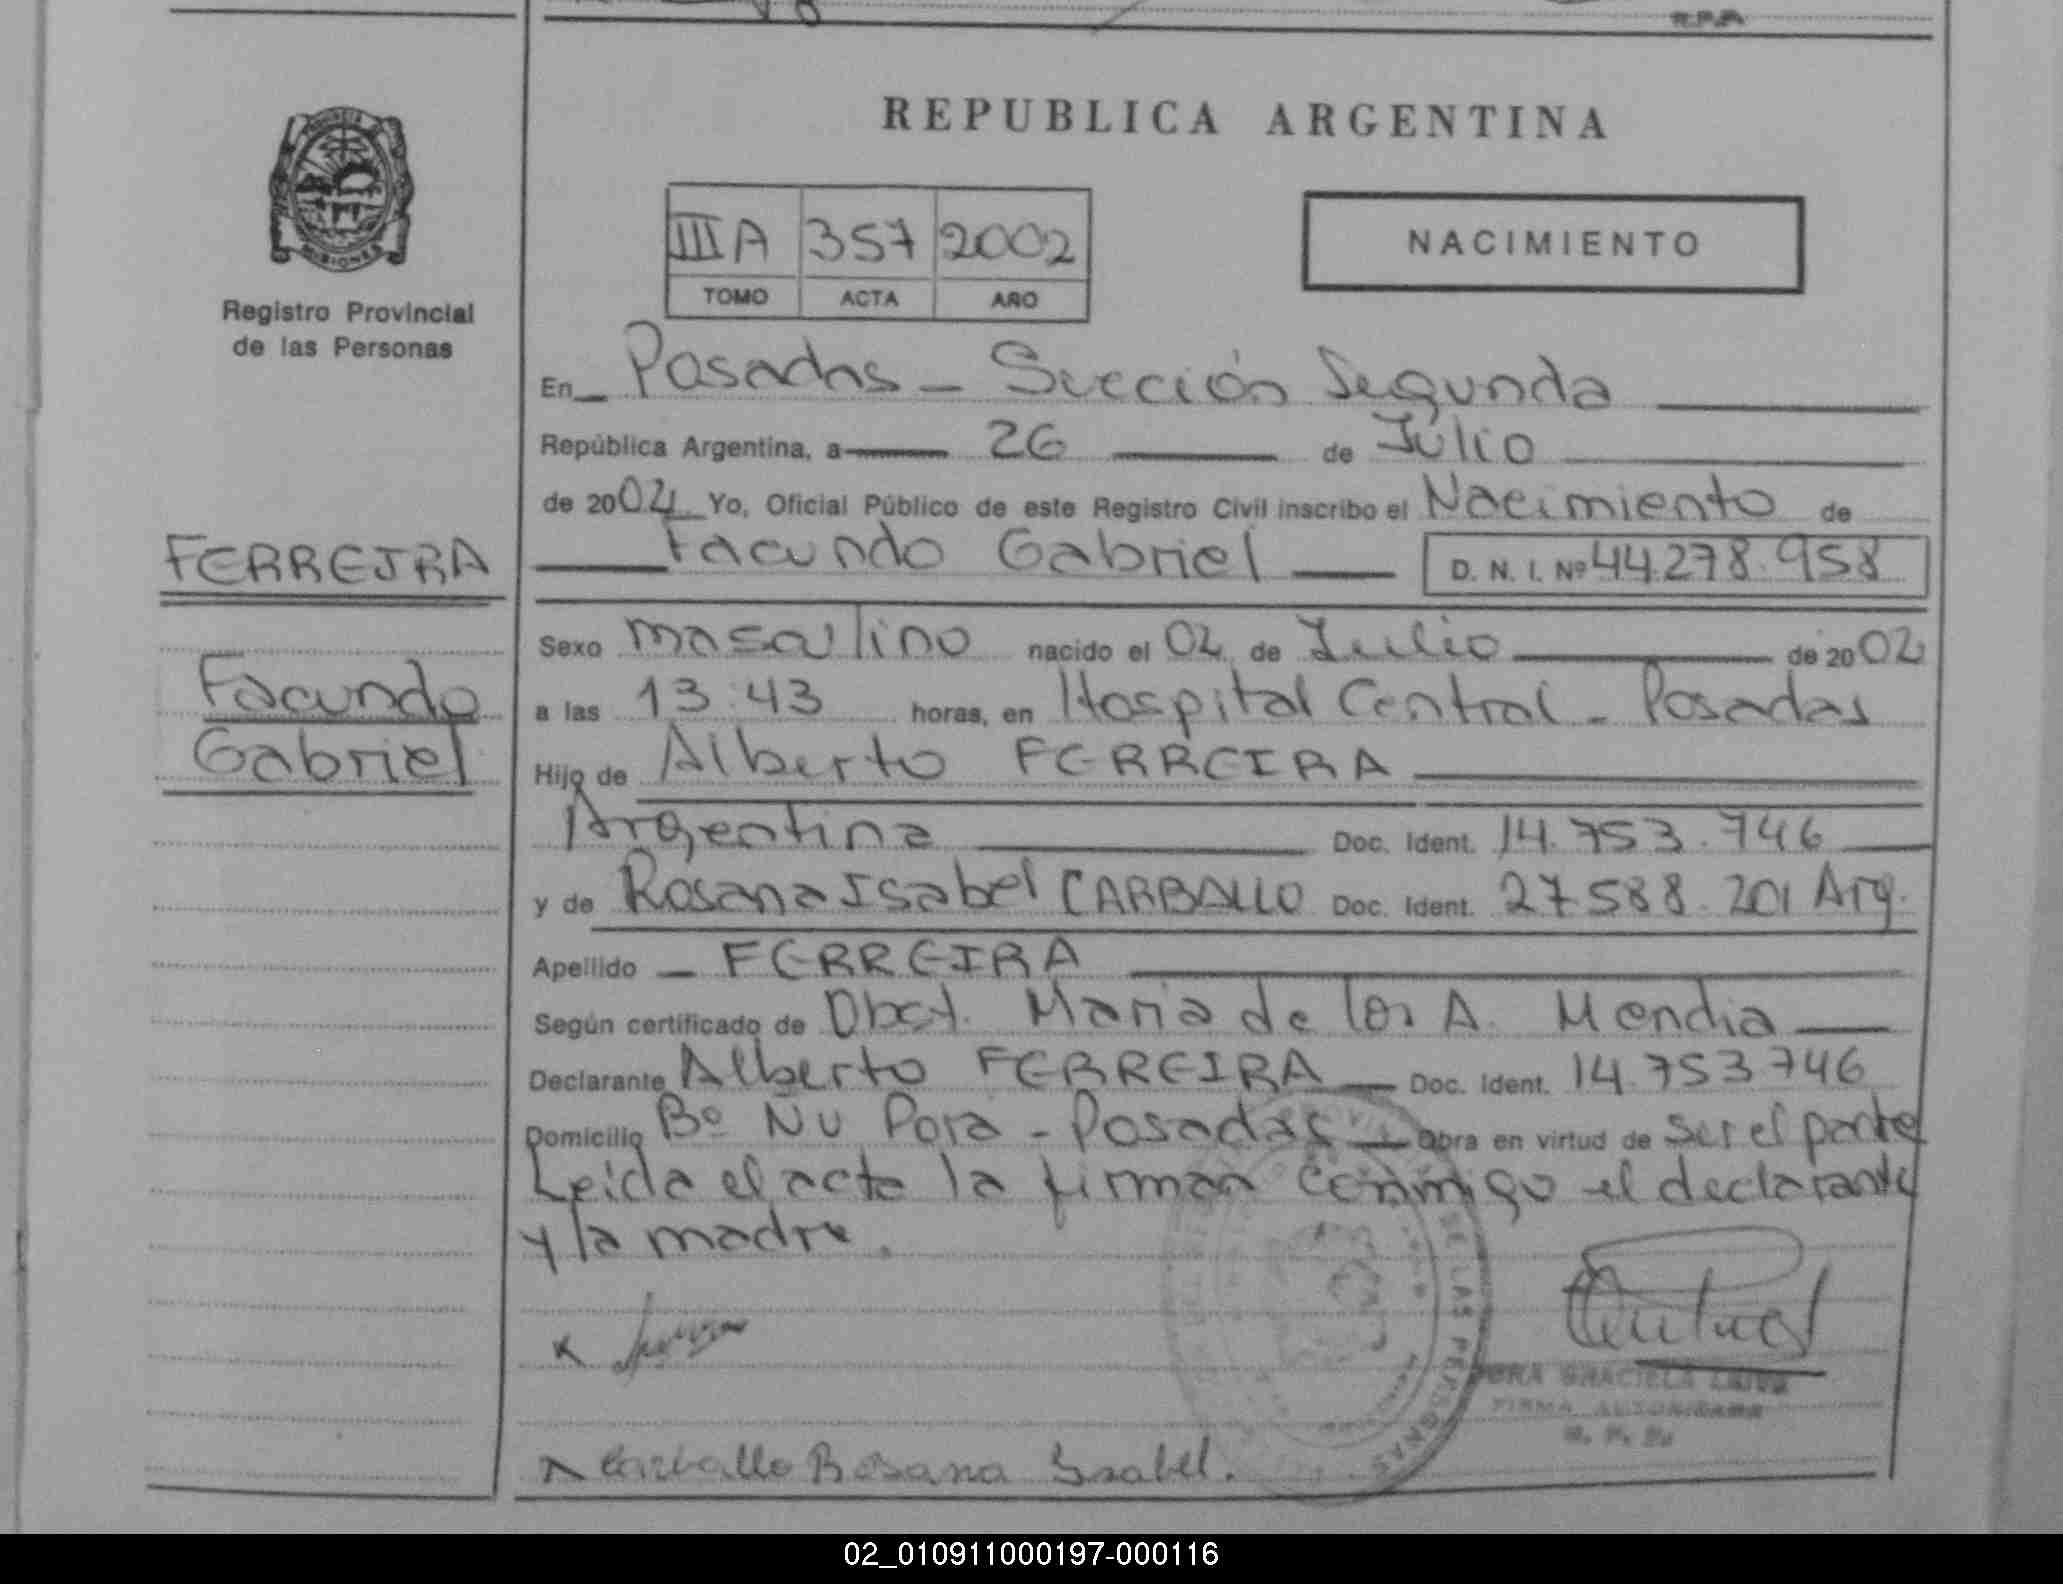 R.P.P.
REPUBLICA ARGENTINA
PROVINCIA DE
MISIONES
Registro Provincial
de las Personas
III A 357 2002
TOMO ACTA AÑO
NACIMIENTO
En Posadas - Sección Segunda
República Argentina, a 26 de Julio
de 2002 Yo, Oficial Público de este Registro Civil inscribo el Nacimiento de
Facundo Gabriel D. N. I. Nº 44.278.958
FERREIRA
Facundo
Gabriel
Sexo masculino nacido el 02 de Julio de 2002
a las 13:43 horas, en Hospital Central - Posadas
Hijo de Alberto FERREIRA
Argentina Doc. Ident. 14.753.746
y de Rosana Isabel CARBALLO Doc. Ident. 27.588.201 Arg.
Apellido FERREIRA
Según certificado de Obst. Maria de los A. Mendia
Declarante Alberto FERREIRA Doc. Ident. 14.753.746
Domicilio Bº Ñu Pora - Posadas Obra en virtud de ser el padre
Leida el acta la firman conmigo el declarante
y la madre.
DE LAS PERSONAS
GRACIELA
FIRMA AUTORIZADA
R. P. P.
Carballo Rosana Isabel.
02_010911000197-000116